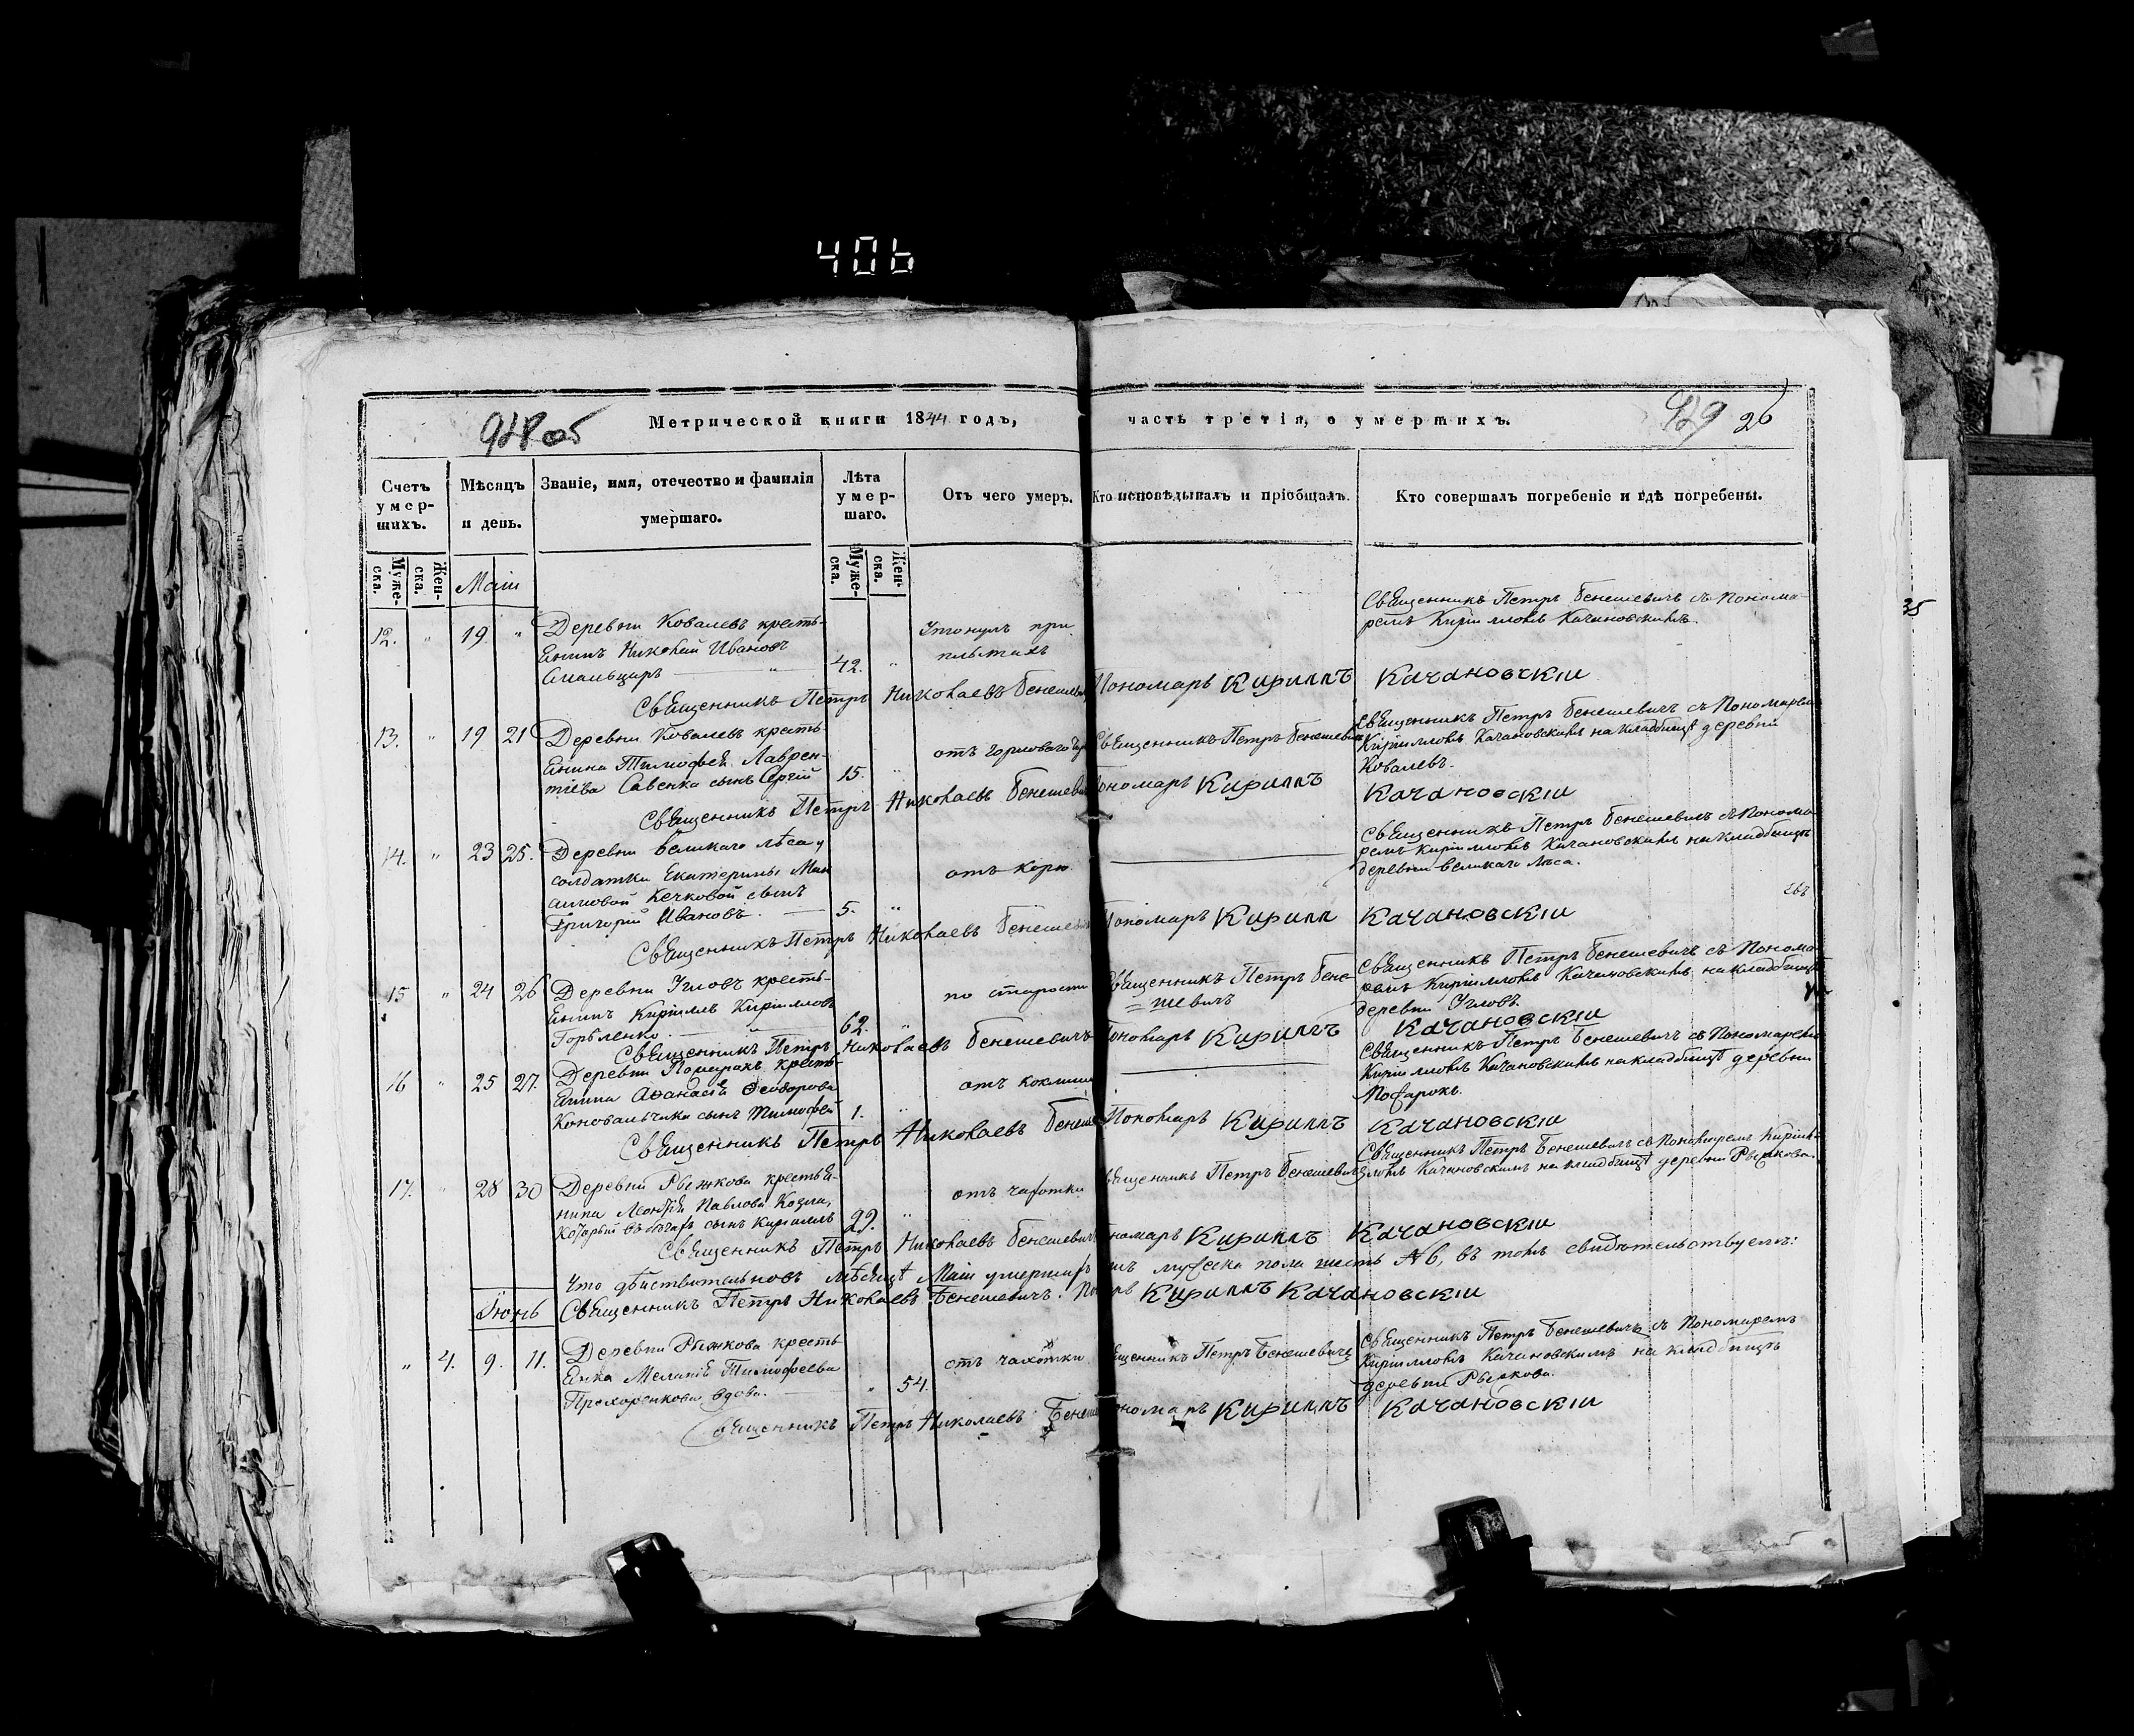 406
928 об
Метрической книги 1844 годъ,
часть третія, о умершихъ.
929 26
Счетъ умер-шихъ.
Мѣсяцъ и день.
Званіе, имя, отечество и фамилія умершаго.
Лѣта умер-шаго.
Отъ чего умеръ.
Кто исповѣдывалъ и пріобщалъ.
Кто совершалъ погребеніе и гдѣ погребены.
Муже-ска.
Жен-ска.
Муже-ска.
Жен-ска.
Маіи
12. " 19. "
Деревни Ковалевъ кресть-
янинъ Николай Ивановъ
42. "
Утонулъ при
Священникъ Петръ Бенешевичъ съ Понома-
ремъ Кирилломъ Качановскимъ.
Священникъ Петръ Николаевъ Бенешеви Пономарь Кириллъ Качановскіи
13. " 19 21
Деревни Ковалевъ кресть-
янина Тимофея Лаврен-
тіева Савенка сынъ Сергій 15. "
отъ горловаго
Священникъ Петръ Бенешевич
Священникъ Петръ Бенешевичъ съ Пономаремъ
Кирилломъ Качановскимъ на кладбищѣ деревни
Ковалевъ.
Священникъ Петръ Николаевъ Бенешеви Пономарь Кириллъ Качановскіи
14. " 23 25.
Деревни Великаго лѣса,
солдатки Екатерины Мак
симовой Кечковой сынъ
Григорій Ивановъ. 5. "
отъ кори
Священникъ Петръ Бенешевичъ съ Понома
ремъ Кирилломъ Качановскимъ на кладбищѣ
деревни Великаго Лѣса.
Священникъ Петръ Николаевъ Бенешеви Пономарь Кирилл Качановскіи
15 " 24 26
Деревни Угловъ кресть-
янинъ Кириллъ Кирилловъ
Горбленко. 62. "
по старости
Священникъ Петръ Бене-
=шевичъ
Священникъ Петръ Бенешевичъ съ Понома
ремъ Кирилломъ Качановскимъ на кладбищѣ
деревни Угловъ.
Священникъ Петръ Николаевъ Бенешевичъ Пономарь Кириллъ Качановскіи
16 " 25 27.
кресть-
янина Аѳанасія Ѳеодорова
Коновальчика сынъ Тимофей 1. "
отъ коклюша
Священникъ Петръ Бенешевичъ съ Пономаремъ
Кирилломъ Качановскимъ на кладбищѣ деревни
Священникъ Петръ Николаевъ Бенеше Пономарь Кириллъ Качановскіи
17. " 28 30
Деревни Рыжкова крестья-
нина Павлова Козла,
сынъ Кириллъ 29. "
отъ чахотки
Священникъ Петръ Бенешевичъ
Священникъ Петръ Бенешевичъ съ Пономаремъ Кирил-
ломъ Качановскимъ на кладбищѣ деревни Рыжкова.
Священникъ Петръ Николаевъ Бенешевичъ Пономарь Кириллъ Качановскіи
Что дѣйствительно въ мѣсяцѣ Маіи умершихъ мужеска пола шесть №6, въ томъ свидѣтельствуемъ:
Священникъ Петръ Николаевъ Бенешевичъ. Кириллъ Качановскіи
Іюнь
" 4. 9. 11.
Деревни Рыжкова кресть
янка Меланія Тимофеева
Прохоренкова вдова. " 54.
отъ чахотки
Священникъ Петръ Бенешевичъ
Священникъ Петръ Бенешевичъ съ Пономаремъ
Кирилломъ Качановскимъ на кладбищѣ
деревни Рыжкова.
Священникъ Петръ Николаевъ Бенеше Пономарь Кириллъ Качановскіи
35